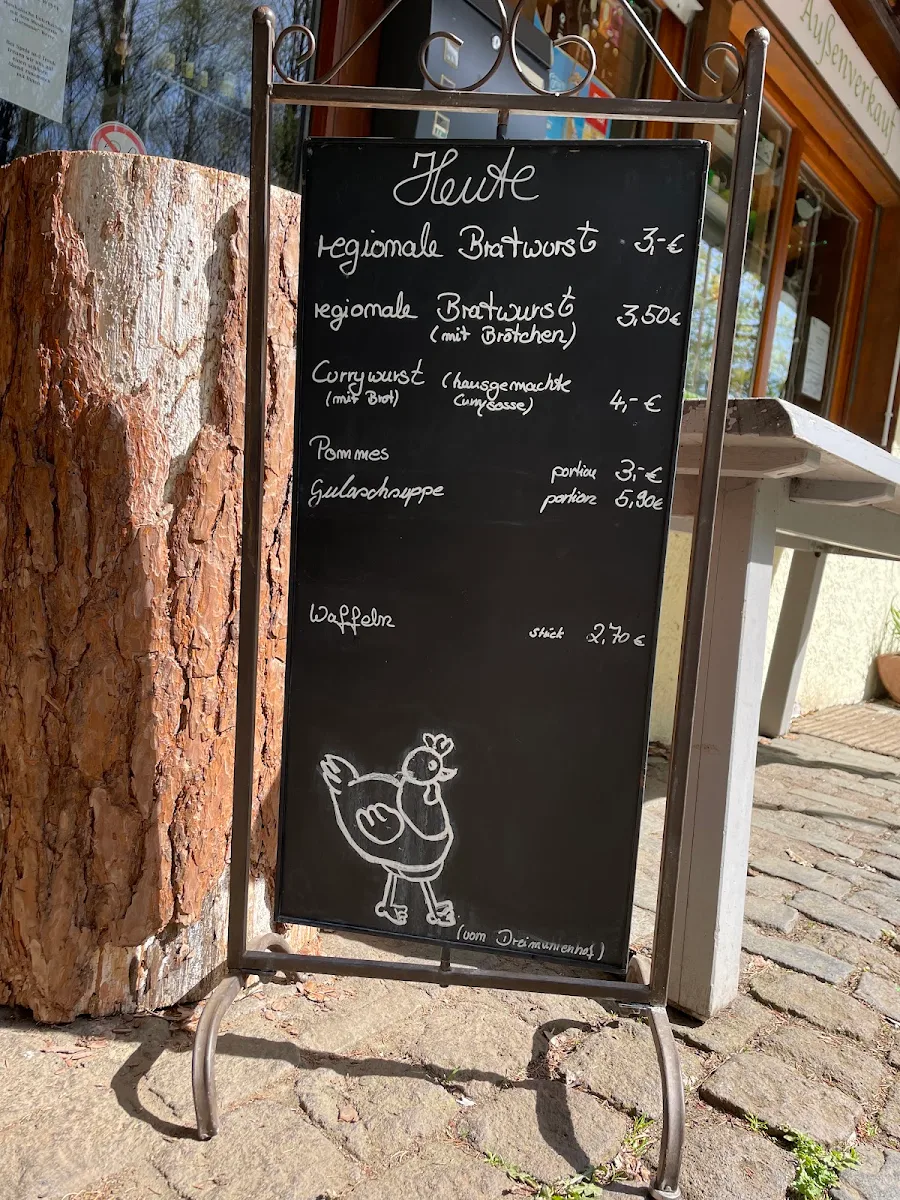 Außenverkauf
Heute
regionale Bratwurst 3,-€
regionale Bratwurst 3,50€
(mit Brötchen)
Currywurst (hausgemachte
(mit Brot) Currysosse) 4,-€
Pommes
portion 3,-€
Gulaschsuppe portion 5,90€
Waffeln Stück 2,70€
(vom Dreimührenhof)